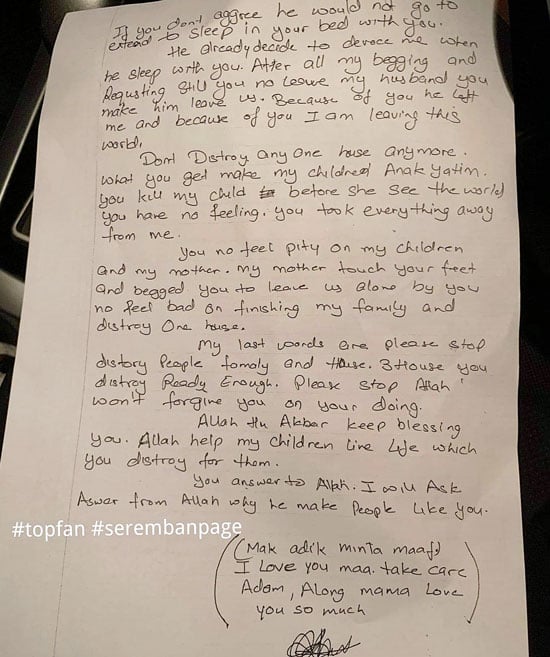 If you dont aggree he would not go to
extead to sleep in your bed with you.
He already decide to devoce me when
he sleep with you. After all my begging and
Requsting still you no leave my husband you
make him leave us. Because of you he left
me and because of you I am leaving this
world.
Dont Distroy any one house anymore.
what you get make my children Anak Yatim.
you kill my child before she see the world
you have no feeling. you took everything away
from me.
you no feel pity on my children
and my mother. my mother touch your feet
and begged you to leave us alone by you
no feel bad on finishing my family and
distroy one house.
My last words are please stop
distory People fomoly and House. 3 House you
distroy Ready Enough. Please stop Allah
won't forgive you on your doing.
Allah Hu Akbar keep blessing
you. Allah help my children live life which
you distroy for them.
You answer to Allah. I will Ask
Aswer from Allah why he make People like you.
#topfan #serembanpage
(Mak adik minta maaf)
I Love you maa. take care
Adam, Along mama Love
you so much